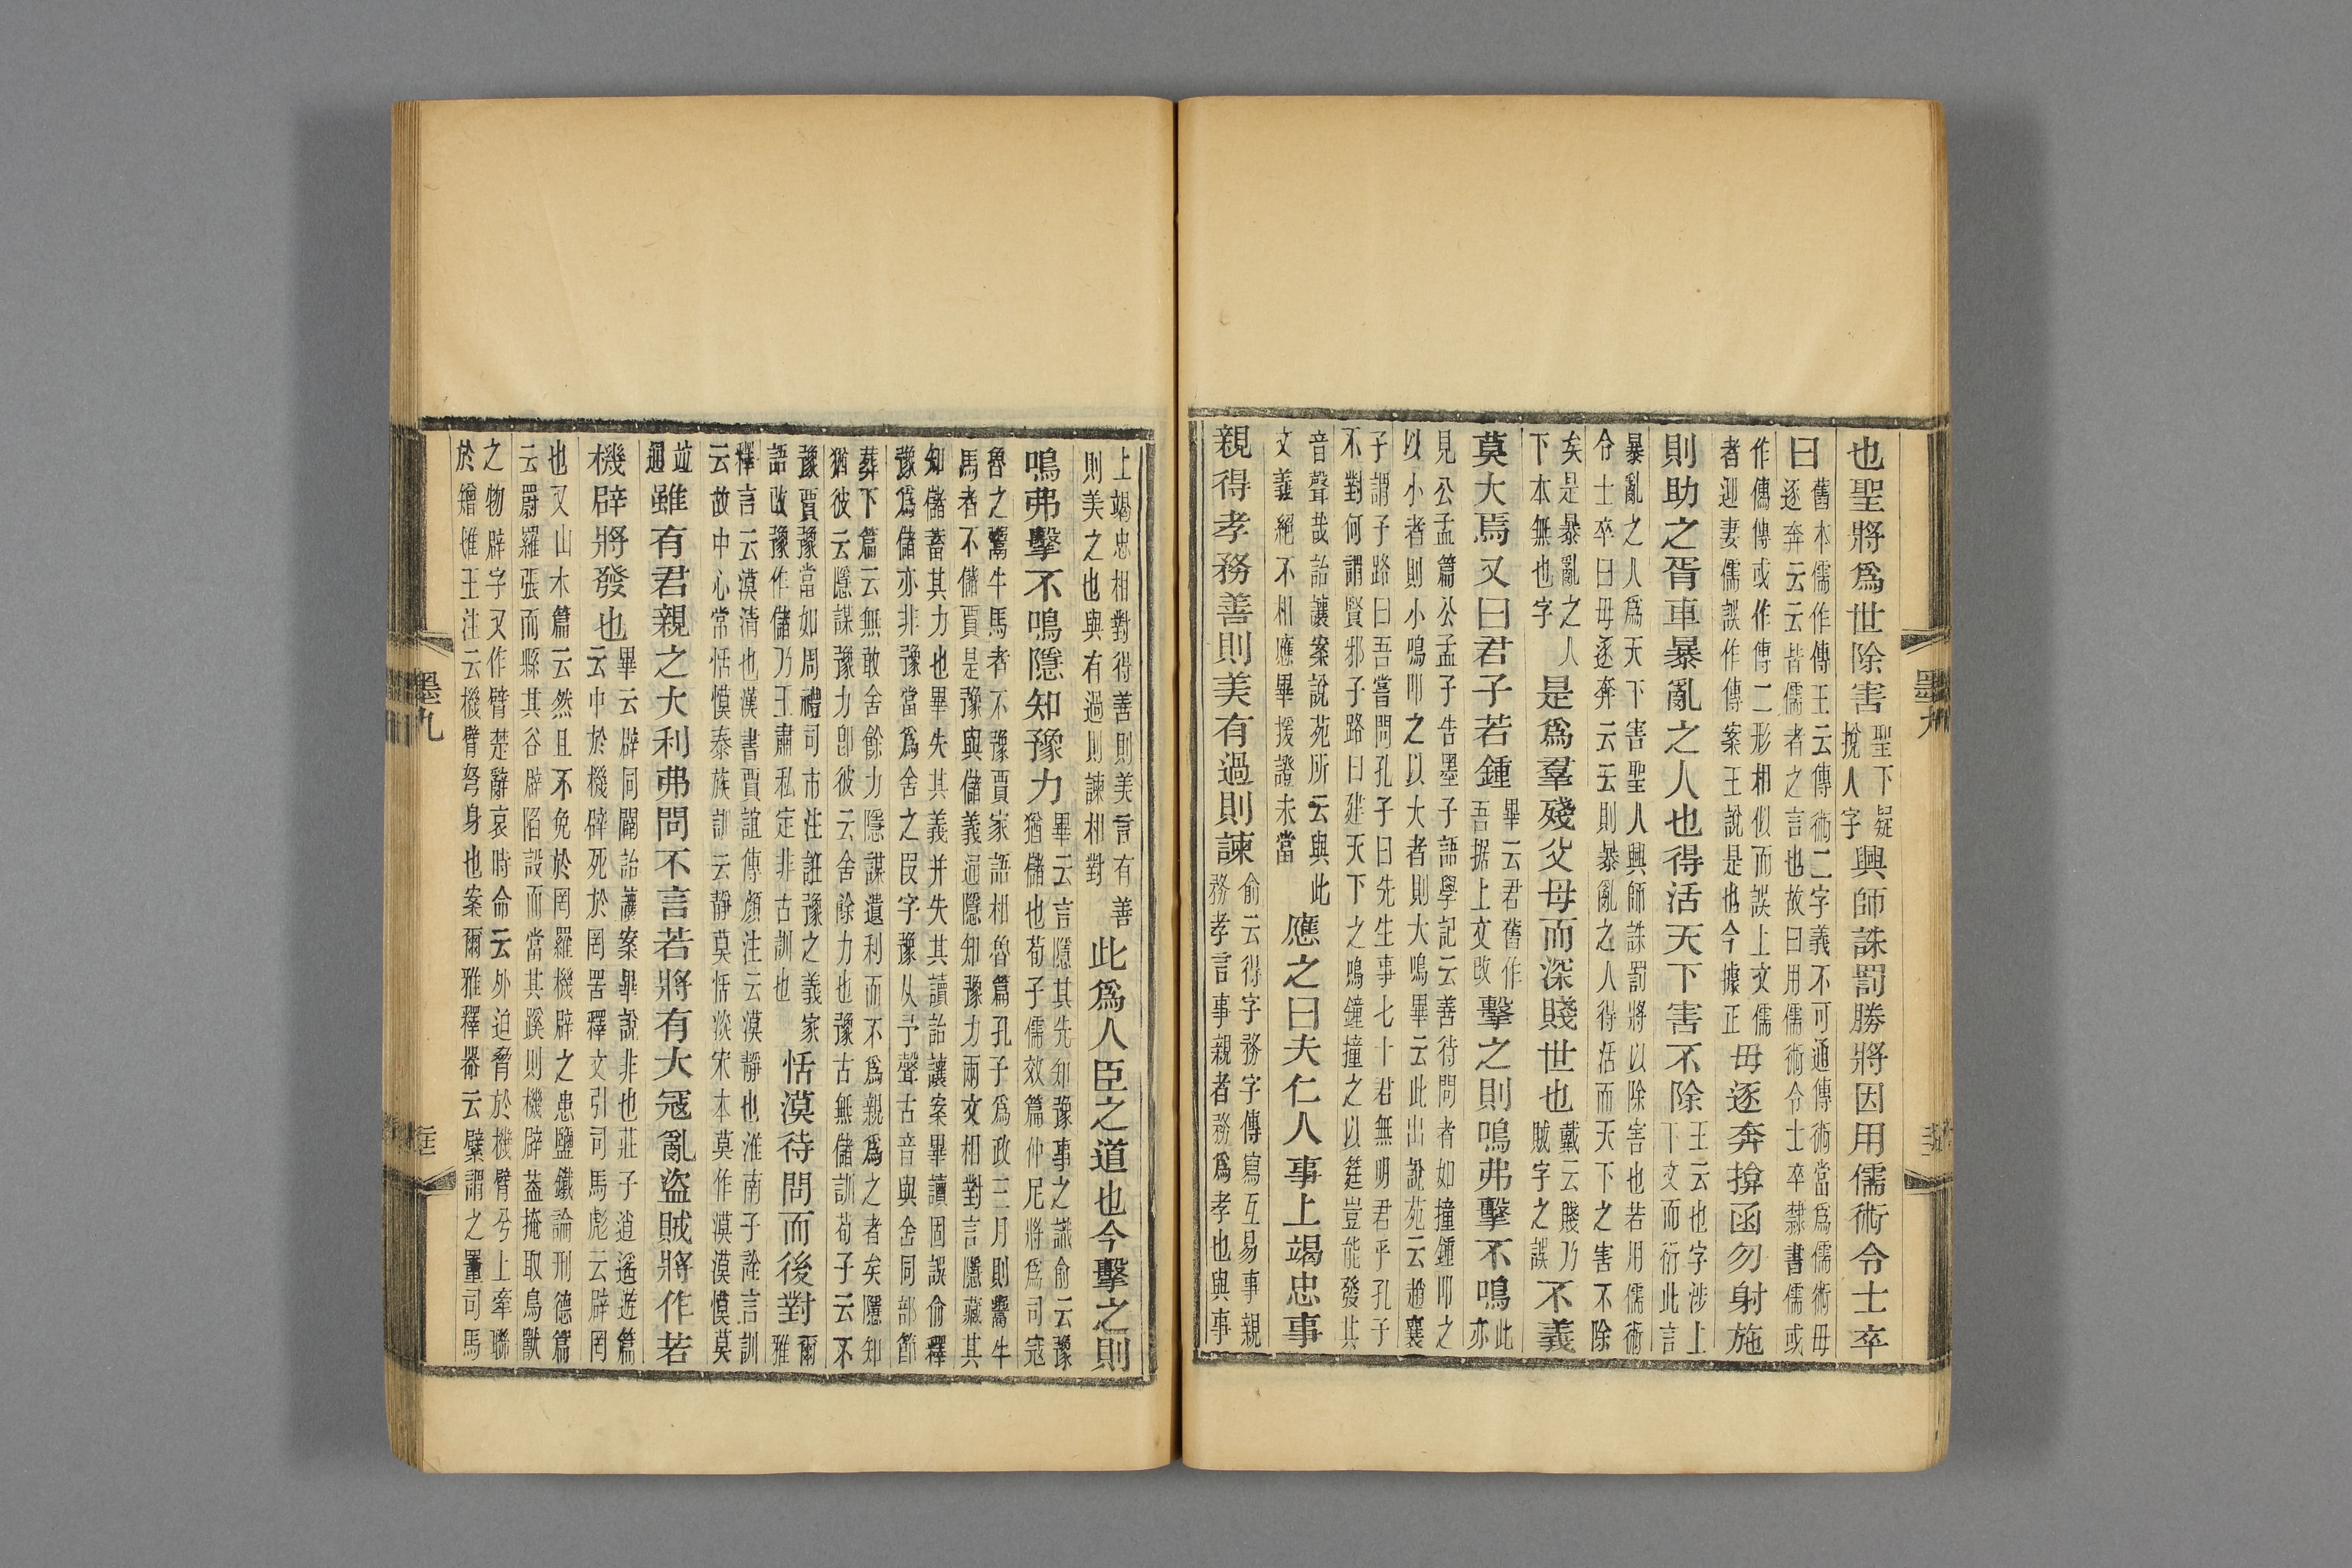 墨九
也聖將爲世除害聖下疑挩人字興師誅罰勝將因用儒術令士卒
曰舊本儒作傳王云傳術二字義不可通傳術當爲儒術毋逐奔云云皆儒者之言也故曰用儒術令士卒隸書儒或
作傿傳或作傳二形相似而誤上文儒者迎妻儒誤作傳案王說是也今據正毋逐奔揜函勿射施
則助之胥車暴亂之人也得活天下害不除王云也字涉上下文而衍此言
暴亂之人爲天下害聖人興師誅罰將以除害也若用儒術令士卒曰毋逐奔云云則暴亂之人得活而天下之害不除
矣是暴亂之人下本無也字是爲羣殘父母而深賤世也戴云賤乃賊字之誤不義
莫大焉又曰君子若鍾畢云君舊作吾据上文改擊之則鳴弗擊不鳴此亦
見公孟篇公孟子告墨子語學記云善待問者如撞鍾叩之以小者則小鳴叩之以大者則大鳴畢云此出說苑云趙襄
子謂子路曰吾嘗問孔子曰先生事七十君無明君乎孔子不對何謂賢邪子路曰建天下之鳴鐘撞之以莛豈能發其
音聲哉詒讓案說苑所云與此文義絕不相應畢援證未當應之曰夫仁人事上竭忠事
親得孝務善則美有過則諫俞云得字務字傳寫互易事親務孝言事親者務爲孝也與事
上竭忠相對得善則美言有善則美之也與有過則諫相對此爲人臣之道也今擊之則
鳴弗擊不鳴隱知豫力畢云言隱其先知豫事之識俞云豫猶儲也荀子儒效篇仲尼將爲司寇
魯之鬻牛馬者不豫賈家語相魯篇孔子爲政三月則鬻牛馬者不儲賈是豫與儲義通隱知豫力兩文相對言隱藏其
知儲蓄其力也畢失其義并失其讀詒讓案畢讀固誤俞釋豫爲儲亦非豫當爲舍之叚字豫从予聲古音與舍同部節
葬下篇云無敢舍餘力隱謀遺利而不爲親爲之者矣隱知猶彼云隱謀豫力卽彼云舍餘力也豫古無儲訓荀子云不
豫賈豫當如周禮司市注誑豫之義家語改豫作儲乃王肅私定非古訓也恬漠待問而後對爾雅
釋言云漠清也漢書賈誼傳顏注云漠靜也淮南子詮言訓云故中心常恬慔泰族訓云靜莫恬淡宋本莫作漠漠慔莫
竝通雖有君親之大利弗問不言若將有大寇亂盜賊將作若
機辟將發也畢云辟同闢詒讓案畢說非也莊子逍遙遊篇云中於機辟死於罔罟釋文引司馬彪云辟罔
也又山木篇云然且不免於罔羅機辟之患鹽鐵論刑德篇云罻羅張而縣其谷辟陷設而當其蹊則機辟蓋掩取鳥獸
之物辟字又作臂楚辭哀時命云外迫脅於機臂兮上牽聯於矰隿王注云機臂弩身也案爾雅釋器云繴謂之罿司馬
墨九